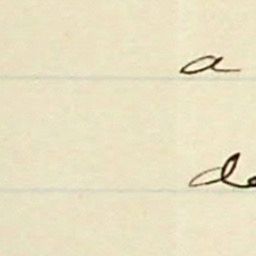 a
de